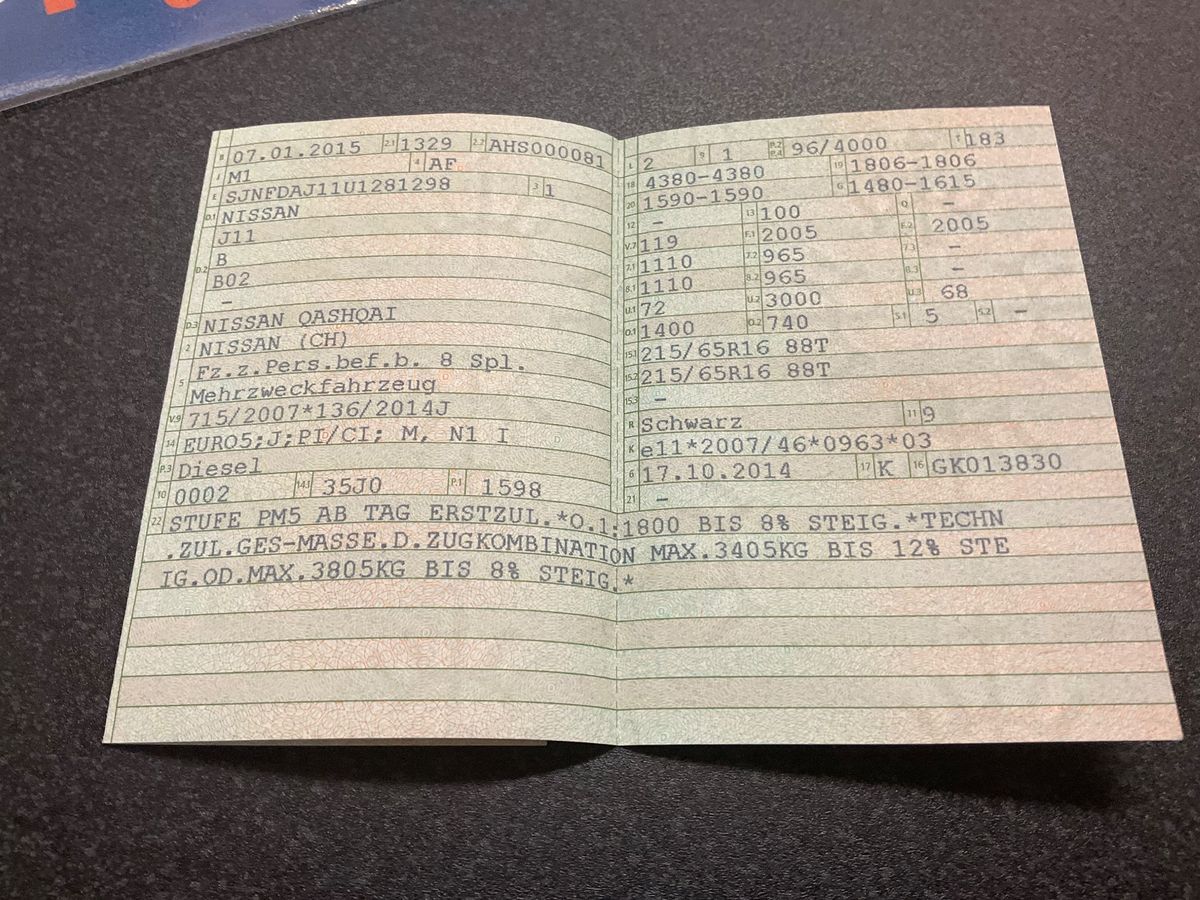 B 07.01.2015 2.1 1329 2.2 AHS000081
J M1 4 AF
E SJNFDAJ11U1281298 3 1
D.1 NISSAN
J11
D.2 B
B02
-
D.3 NISSAN QASHQAI
2 NISSAN (CH)
5 Fz.z.Pers.bef.b. 8 Spl.
Mehrzweckfahrzeug
V.9 715/2007*136/2014J
14 EURO5;J;PI/CI; M, N1 I
P.3 Diesel
10 0002 14.1 35J0 P.1 1598
L 2 9 1 P.2 P.4 96/4000 T 183
18 4380-4380 19 1806-1806
20 1590-1590 G 1480-1615
12 - 13 100 Q -
V.7 119 F.1 2005 F.2 2005
7.1 1110 7.2 965 7.3 -
8.1 1110 8.2 965 8.3 -
U.1 72 U.2 3000 U.3 68
O.1 1400 O.2 740 S.1 5 S.2 -
15.1 215/65R16 88T
15.2 215/65R16 88T
15.3 -
R Schwarz 11 9
K e11*2007/46*0963*03
6 17.10.2014 17 K 16 GK013830
21 -
22 STUFE PM5 AB TAG ERSTZUL.*O.1:1800 BIS 8% STEIG.*TECHN
.ZUL.GES-MASSE.D.ZUGKOMBINATION MAX.3405KG BIS 12% STE
IG.OD.MAX.3805KG BIS 8% STEIG.*